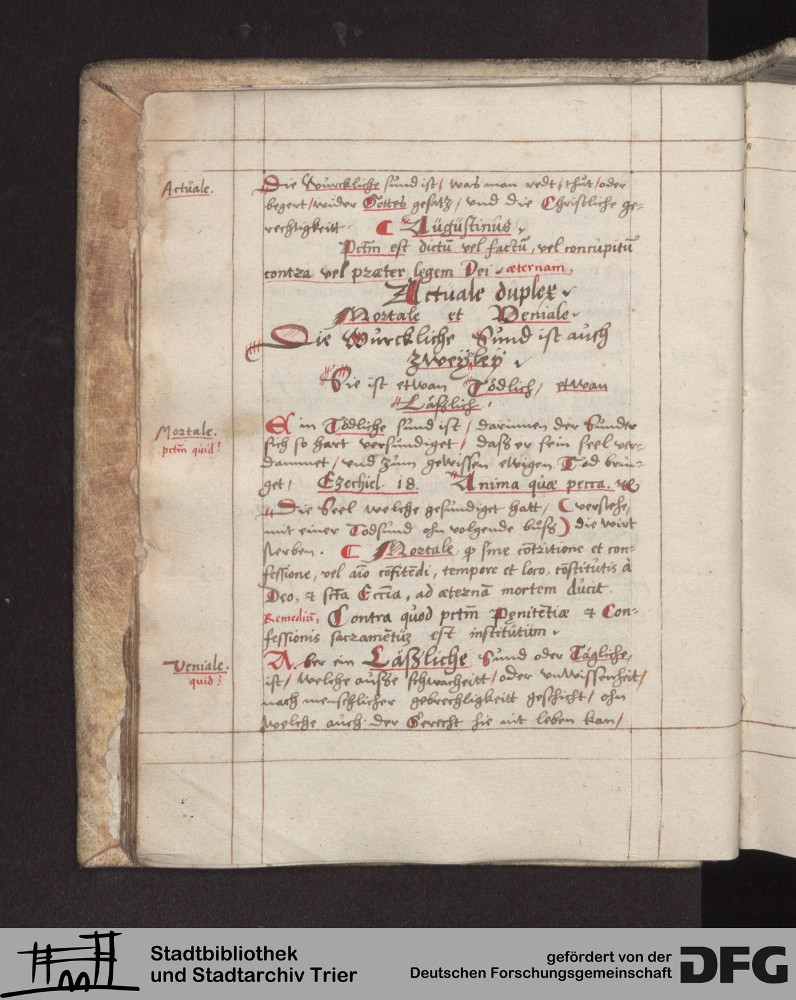 Actuale.
Die Würckliche sünd ist/ was man redt/ thůt/ oder
begert/ wider Gottes gesatz/ und die Christliche ge-
rechtigkeitt. Augustinus.
Pctm̄ est dictū vel factū, vel concupitū
contra vel præter legem Dei æternam,
Actuale duplex
Mortale et Veniale.
Die Würckliche Sünd ist auch
zweÿleÿ.
Sie ist etwan Tödlich/ etwan
Läßlich.
Mortale.
pctm̄ quid?
Ein Tödliche sünd ist/ darinnen der Sünder
sich so hart versündiget/ daß er sein seel ver-
dammet/ und zum gewissen ewigen Tod brin-
get/ Ezechiel. 18. Anima quæ pecca. &c
Die Seel welche gesündiget hatt/ (verstehe,
mit einer Todsünd ohn volgende bůß) die wirt
sterben. Mortale, sine cōtritione et con-
fessione, vel aīo cōfitēdi, tempore et loco, cōstitutis à
Deo, & sctā Ecc͞ia, ad æternā mortem ducit.
Remediū, Contra quod pctm̄ Pęnitētiæ & Con-
fessionis sacramētū est institutum.
Veniale.
quid?
Aber ein Läßliche Sünd oder Tägliche,
ist/ welche außße schwacheitt/ oder unwissenheit/
nach menschlicher gebrechligkeitt geschicht/ ohn
welche auch der Gerecht hie nit leben kan/
Stadtbibliothek
und Stadtarchiv Trier
gefördert von der
Deutschen Forschungsgemeinschaft
DFG